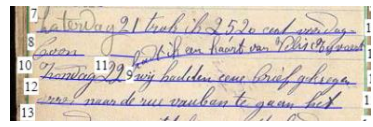 7 Zaterdag 21 trok ik 25.20 cent voor dag
8 Loon
hadt ik een kaart van
10 11 Zondag 22 9 wij hadden eene brief gekregen
12 naar de rue vauban te gaan het
13